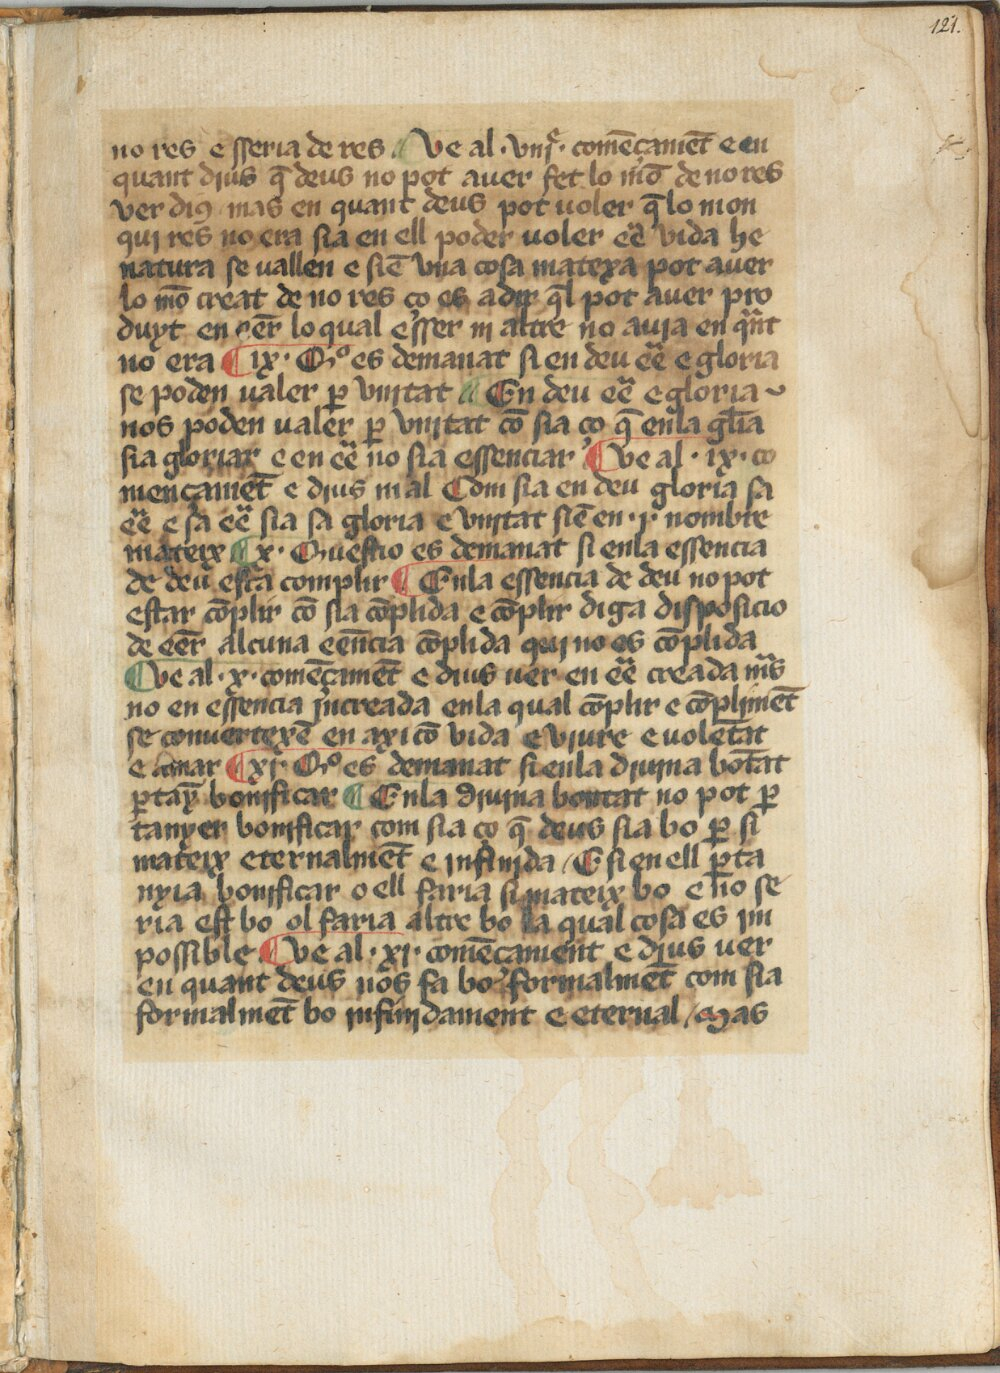 121.
no res e sseria de res ¶ Ve al · viijͤ · comēçamēt e en
quant dius q̄ deus no pot auer fet lo mō de no res
ver diꝯ mas en quant deus pot uoler q̄ lo mon
qui res no era sia en ell poder uoler eē vida he
natura se uallen e siē vna cosa matexa pot auer
lo mō creat de no res ço es a dir q̄l pot auer pro
duyt en eēr lo qual esser ni altre no auia en qͣnt
no era ¶ ix · Qͦ es demanat si en deu eē e gloria
se poden ualer ꝑ vnitat ¶ En deu eē e gloria
nos poden ualer ꝑ vnitat cō sia ço q̄ en la gl̄ia
sia gloriar e en eē no sia essenciar ¶ Ve al · ix · co
mençamēt e dius mal Com sia en deu gloria sa
eē e sa eē sia sa gloria e vnitat siē en · j · nombre
mateix ¶ x · Questio es demanat si en la essencia
de deu esta complir ¶ En la essencia de deu no pot
estar cōplir cō sia cōplida e cōplir diga disposicio
de eēr alcuna eēncia cōplida qui no es cōplida
¶ Ve al · x · comēçamēt e dius uer en eē creada mͣs
no en essencia increada en la qual cōplir e cōplimēt
se conuertexē en axi cō vida e viure e uolētat
e amar ¶ xi · Qͦ es demanat si en la diuina bōtat
ꝑtāy bonificar ¶ En la diuina bontat no pot ꝑ
tanyer bonificar com sia ço q̄ deus sia bo ꝑ si
mateix eternalmēt e infinida / E si en ell ꝑta
nyia bonificar o ell faria si mateix bo e no se
ria est bo ol faria altre bo la qual cosa es im
possible ¶ Ve al · xi · comēçament e dius uer
en quant deus nos fa bo formalmēt com sia
formalmēt bo infinidament e eternal / mas